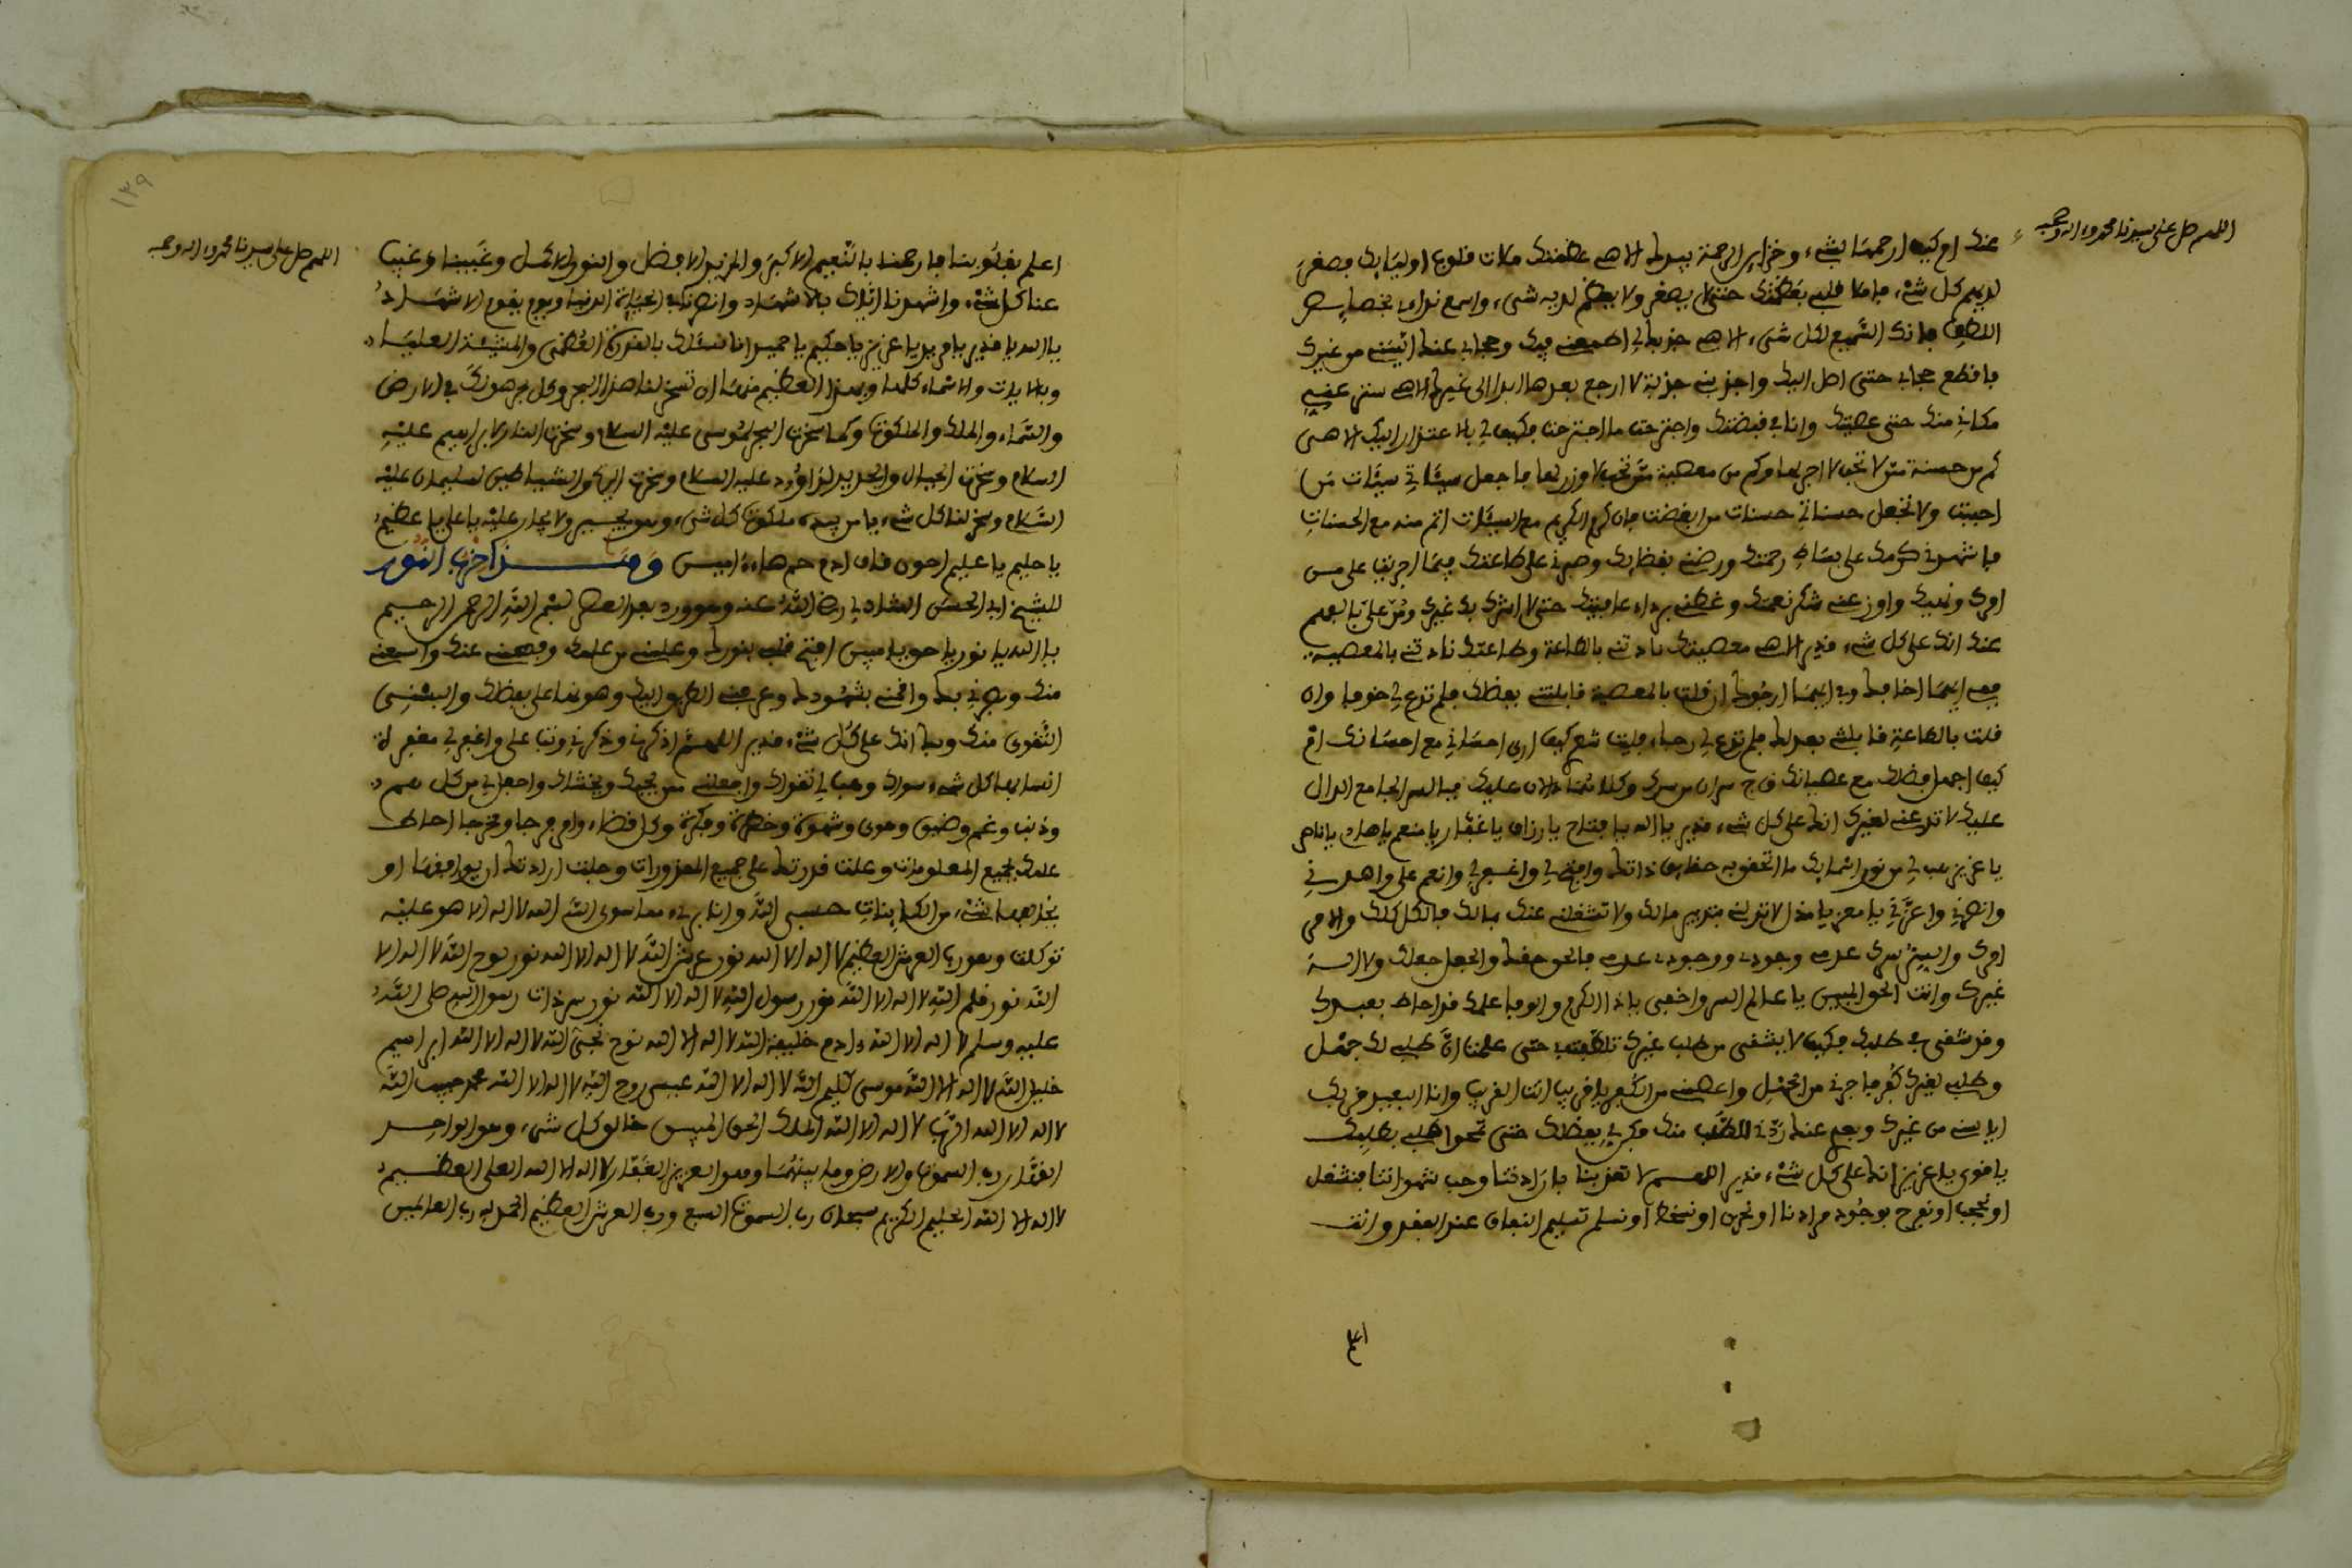 اللهم صل على سيدنا محمد وءاله وصحبه
عنك ام كيف ارحم بشيء وخزاين الرحمة بيدك الاهي عظمتك ملات قلوب اوليايك فصغر
لديهم كل شيء فاملا قلبي بعظمتك حتى لا يصغر ولا يعظم لديه شيء واسمع نداءي بخصايص
اللطف فانك السميع لكل شيء الاهي جذبك لي اطمعني فيك وحجابي عنك ايسني من غيرك
فاقطع حجابي حتى اصل اليك واجذبني جذبة لا ارجع بعدها ابدا الى غيرك الاهي ستر عني
مكاني منك حتى عصيتك وانا في قبضتك واجترحت ما اجترحت فكيف لي بالاعتذار اليك الاهي
كم من حسنة ممن لا تحب لا اجر لها وكم من سيئة ممن تحب لا وزر لها فاجعل سيئاتي سيئات من
احببت ولا تجعل حسناتي حسنات من ابغضت فان كرم الكريم مع السيئات اتم منه مع الحسنات
فاشهدني كرمك على بساط رحمتك ورضني بقضايك وصبرني على طاعتك فيما اجريت علي من
امرك ونهيك واوزعني شكر نعمتك وغطني برداء عافيتك حتى لا اشرك بك غيرك ومن علي بالفهم
عنك انك على كل شيء قدير الاهي معصيتك نادتني بالطاعة وطاعتك نادتني بالمعصية
ففي ايهما اخافك وفي ايهما ارجوك ان قلت بالمعصية قابلتني بفضلك فلم تدع لي خوفا وان
قلت بالطاعة قابلتني بعدلك فلم تدع لي رجاء فليت شعري كيف ارى احساني مع احسانك ام
كيف اجهل فضلك مع عصيانك ق ج سران من سرك وكلاهما دالان عليك فبالسر الجامع الدال
عليك لا تدعني لغيرك انك على كل شيء قدير يا الله يا فتاح يا رزاق يا غفار يا منعم يا هادي يا ناصر
يا عزيز هب لي من نور اسمايك ما اتحقق به حقايق ذاتك وافتح لي واغفر لي وانعم علي واهدني
وانصرني واعزني يا معز يا مذل لا تذلني بتدبير مالك ولا تشغلني عنك بمالك فالكل كلك والامر
امرك والسر سرك عدمي وجودي ووجودي عدمي فالحق حقك والجعل جعلك ولا اله
غيرك وانت الحق المبين يا عالم السر واخفى يا ذا الكرم والوفا علمك قد احاط بعبدك
وقد شقي في طلبك فكيف لا يشقى من طلب غيرك تلطفت بي حتى علمت ان طلبي لك جهل
وطلبي لغيرك كفر فاجرني من الجهل واعصمني من الكفر يا قريب انت القريب وانا البعيد قربك
ايأسني من غيرك وبعدي عنك ردني للطلب منك فكن لي بفضلك حتى تمحو طلبي بطلبك
يا قوي يا عزيز انك على كل شيء قدير اللهم لا تعذبنا بارادتنا وحب شهواتنا فنشغل
او نحجب او نفرح بوجود مرادنا او نحزن او نسخط او نسلم تسليم النفاق عند الفقد وانت
اع
١٣٩
اللهم صل على سيدنا محمد وءاله وصحبه
اعلم بقلوبنا فارحمنا بالنعيم الاكبر والمزيد الافضل والنور الاكمل وغيبنا وغيب
عنا كل شيء واشهدنا اياك بالاشهاد وانصرنا في الحياة الدنيا ويوم يقوم الاشهاد
يا الله يا قدير يا مريد يا عزيز يا حكيم يا حميد انا نسئلك بالقدرة العظمى والمشيئة العليا
وبالايات والاسماء كلها وبهذا العظيم منها ان تسخر لنا هذا البحر وكل بحر هو لك في الارض
والسماء والملك والملكوت وكما سخرت البحر لموسى عليه السلام وسخرت النار لابراهيم عليه
السلام وسخرت الجبال والحديد لداوود عليه السلام وسخرت الريح والشياطين لسليمان عليه
السلام وسخر لنا كل شيء يا من بيده ملكوت كل شيء وهو يجير ولا يجار عليه يا علي يا عظيم
يا حليم يا عليم احون قاف ادم حم هاء ءامين وهذا حزب النور
للشيخ ابي الحسن الشاذلي رضي الله عنه وهو ورد بعد العصر بسم الله الرحمن الرحيم
يا الله يا نور يا حق يا مبين افتح قلبي بنورك وعلمني من علمك وفهمني عنك واسمعني
منك وبصرني بك واقمني بشهودك وعرفني الطريق اليك وهونها علي بفضلك والبسني
التقوى منك وبك انك على كل شيء قدير اللهم اذكرني وذكرني وتب علي واغفر لي مغفرة
انسى بها كل شيء سواك وهب لي تقواك واجعلني ممن يحبك ويخشاك واجعل لي من كل هم
وذنب وغم وضيق وهوى وشهوة وخطرة وفكرة وكل قضاء وامر فرجا ومخرجا احاط
علمك بجميع المعلومات وعلت قدرتك على جميع المقدورات وجلت ارادتك ان يوافقها او
يخالفها شيء من الكاينات حسبي الله وانا بريء مما سوى الله الله لا اله الا هو عليه
توكلت وهو رب العرش العظيم لا اله الا الله نور عرش الله لا اله الا الله نور لوح الله لا اله الا
الله نور قلم الله لا اله الا الله نور رسول الله لا اله الا الله نور سر ذات رسول الله صلى الله
عليه وسلم لا اله الا الله ءادم خليفة الله لا اله الا الله نوح نجي الله لا اله الا الله ابراهيم
خليل الله لا اله الا الله موسى كليم الله لا اله الا الله عيسى روح الله لا اله الا الله محمد حبيب الله
لا اله الا الله الرب لا اله الا الله الملك الحق المبين خالق كل شيء وهو الواحد
القهار رب السموت والارض وما بينهما وهو العزيز الغفار لا اله الا الله العلي العظيم
لا اله الا الله الحليم الكريم سبحان رب السموت السبع ورب العرش العظيم الحمد لله رب العالمين